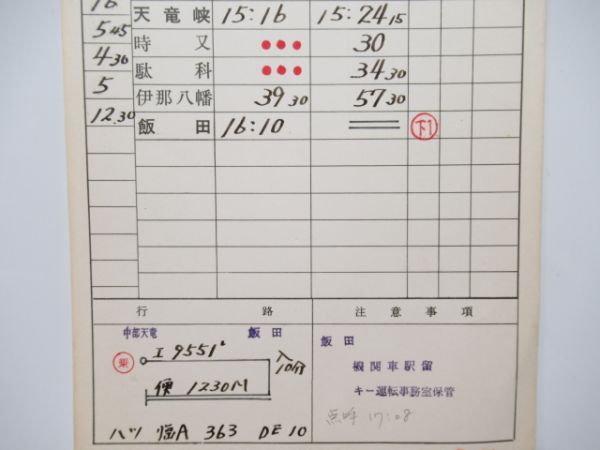 16 天竜峡 15:16 15:24 15
5 45 時又 30
4 30 駄科 34 30
5 伊那八幡 39 30 57 30
12.30 飯田 16:10 下1
行路 注意事項
中部天竜 飯田
乗 I 9551
入 10分
便 1230M
ハツ A 363 DE 10
飯田
機関車駅留
キー運転事務室保管
点呼 17:08